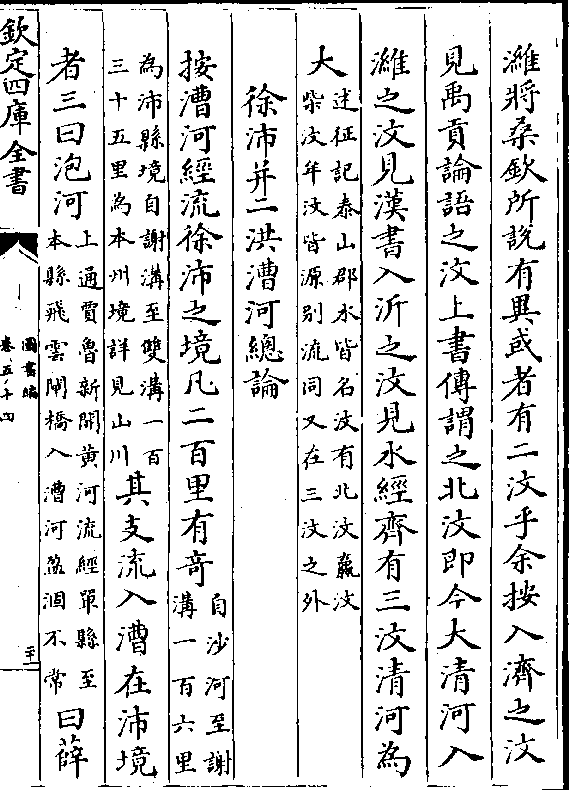 濰將桑欽所說有異或者有二汶乎余按入濟之汶
見禹貢論語之汶上書傳謂之北汶即今大清河入
濰之汶見漢書入沂之汶見水經齊有三汶清河為
大述征記泰山郡水皆名汶有北汶嬴汶
柴汶牟汶皆源别流同又在三汶之外
徐沛并二洪漕河總論
按漕河經流徐沛之境凡二百里有奇自沙河至謝
溝一百六里
為沛縣境自謝溝至雙溝一百
三十五里為本州境詳見山川其支流入漕在沛境
者三曰泡河上通賈魯新開黃河流經單縣至
本縣飛雲閘橋入漕河盈涸不常曰薛
欽定四庫全書
圖書編
卷五十四
二十一